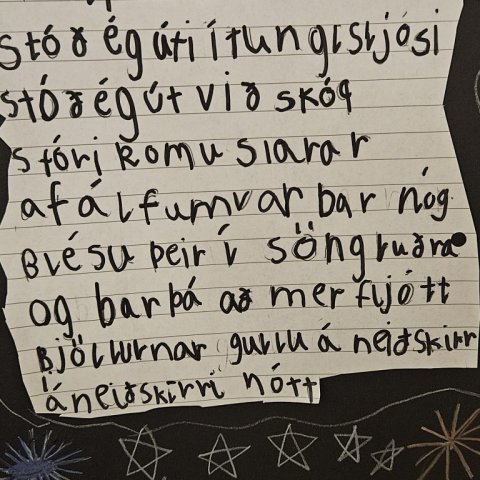 stóð ég úti í tunglsljósi
stóð ég út við skóg
stórj komu slarar
af álfum var bar nóg
Blésu þeir í söngluðra
og bar þá að mer fljótt
Bjöllurnar gullu á neiðskirr
á neiðskirri nótt